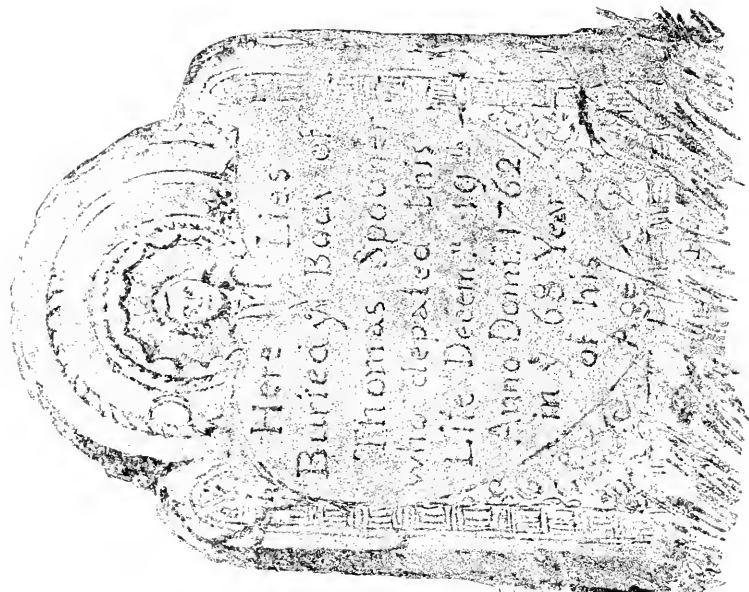 Here Lies
Buried yᵉ Body of
Thomas Spooner
who depated this
Life Decem.ʳ 19ᵗʰ
Anno Domi. 1762
in yᵉ 68 Year
of his
Age